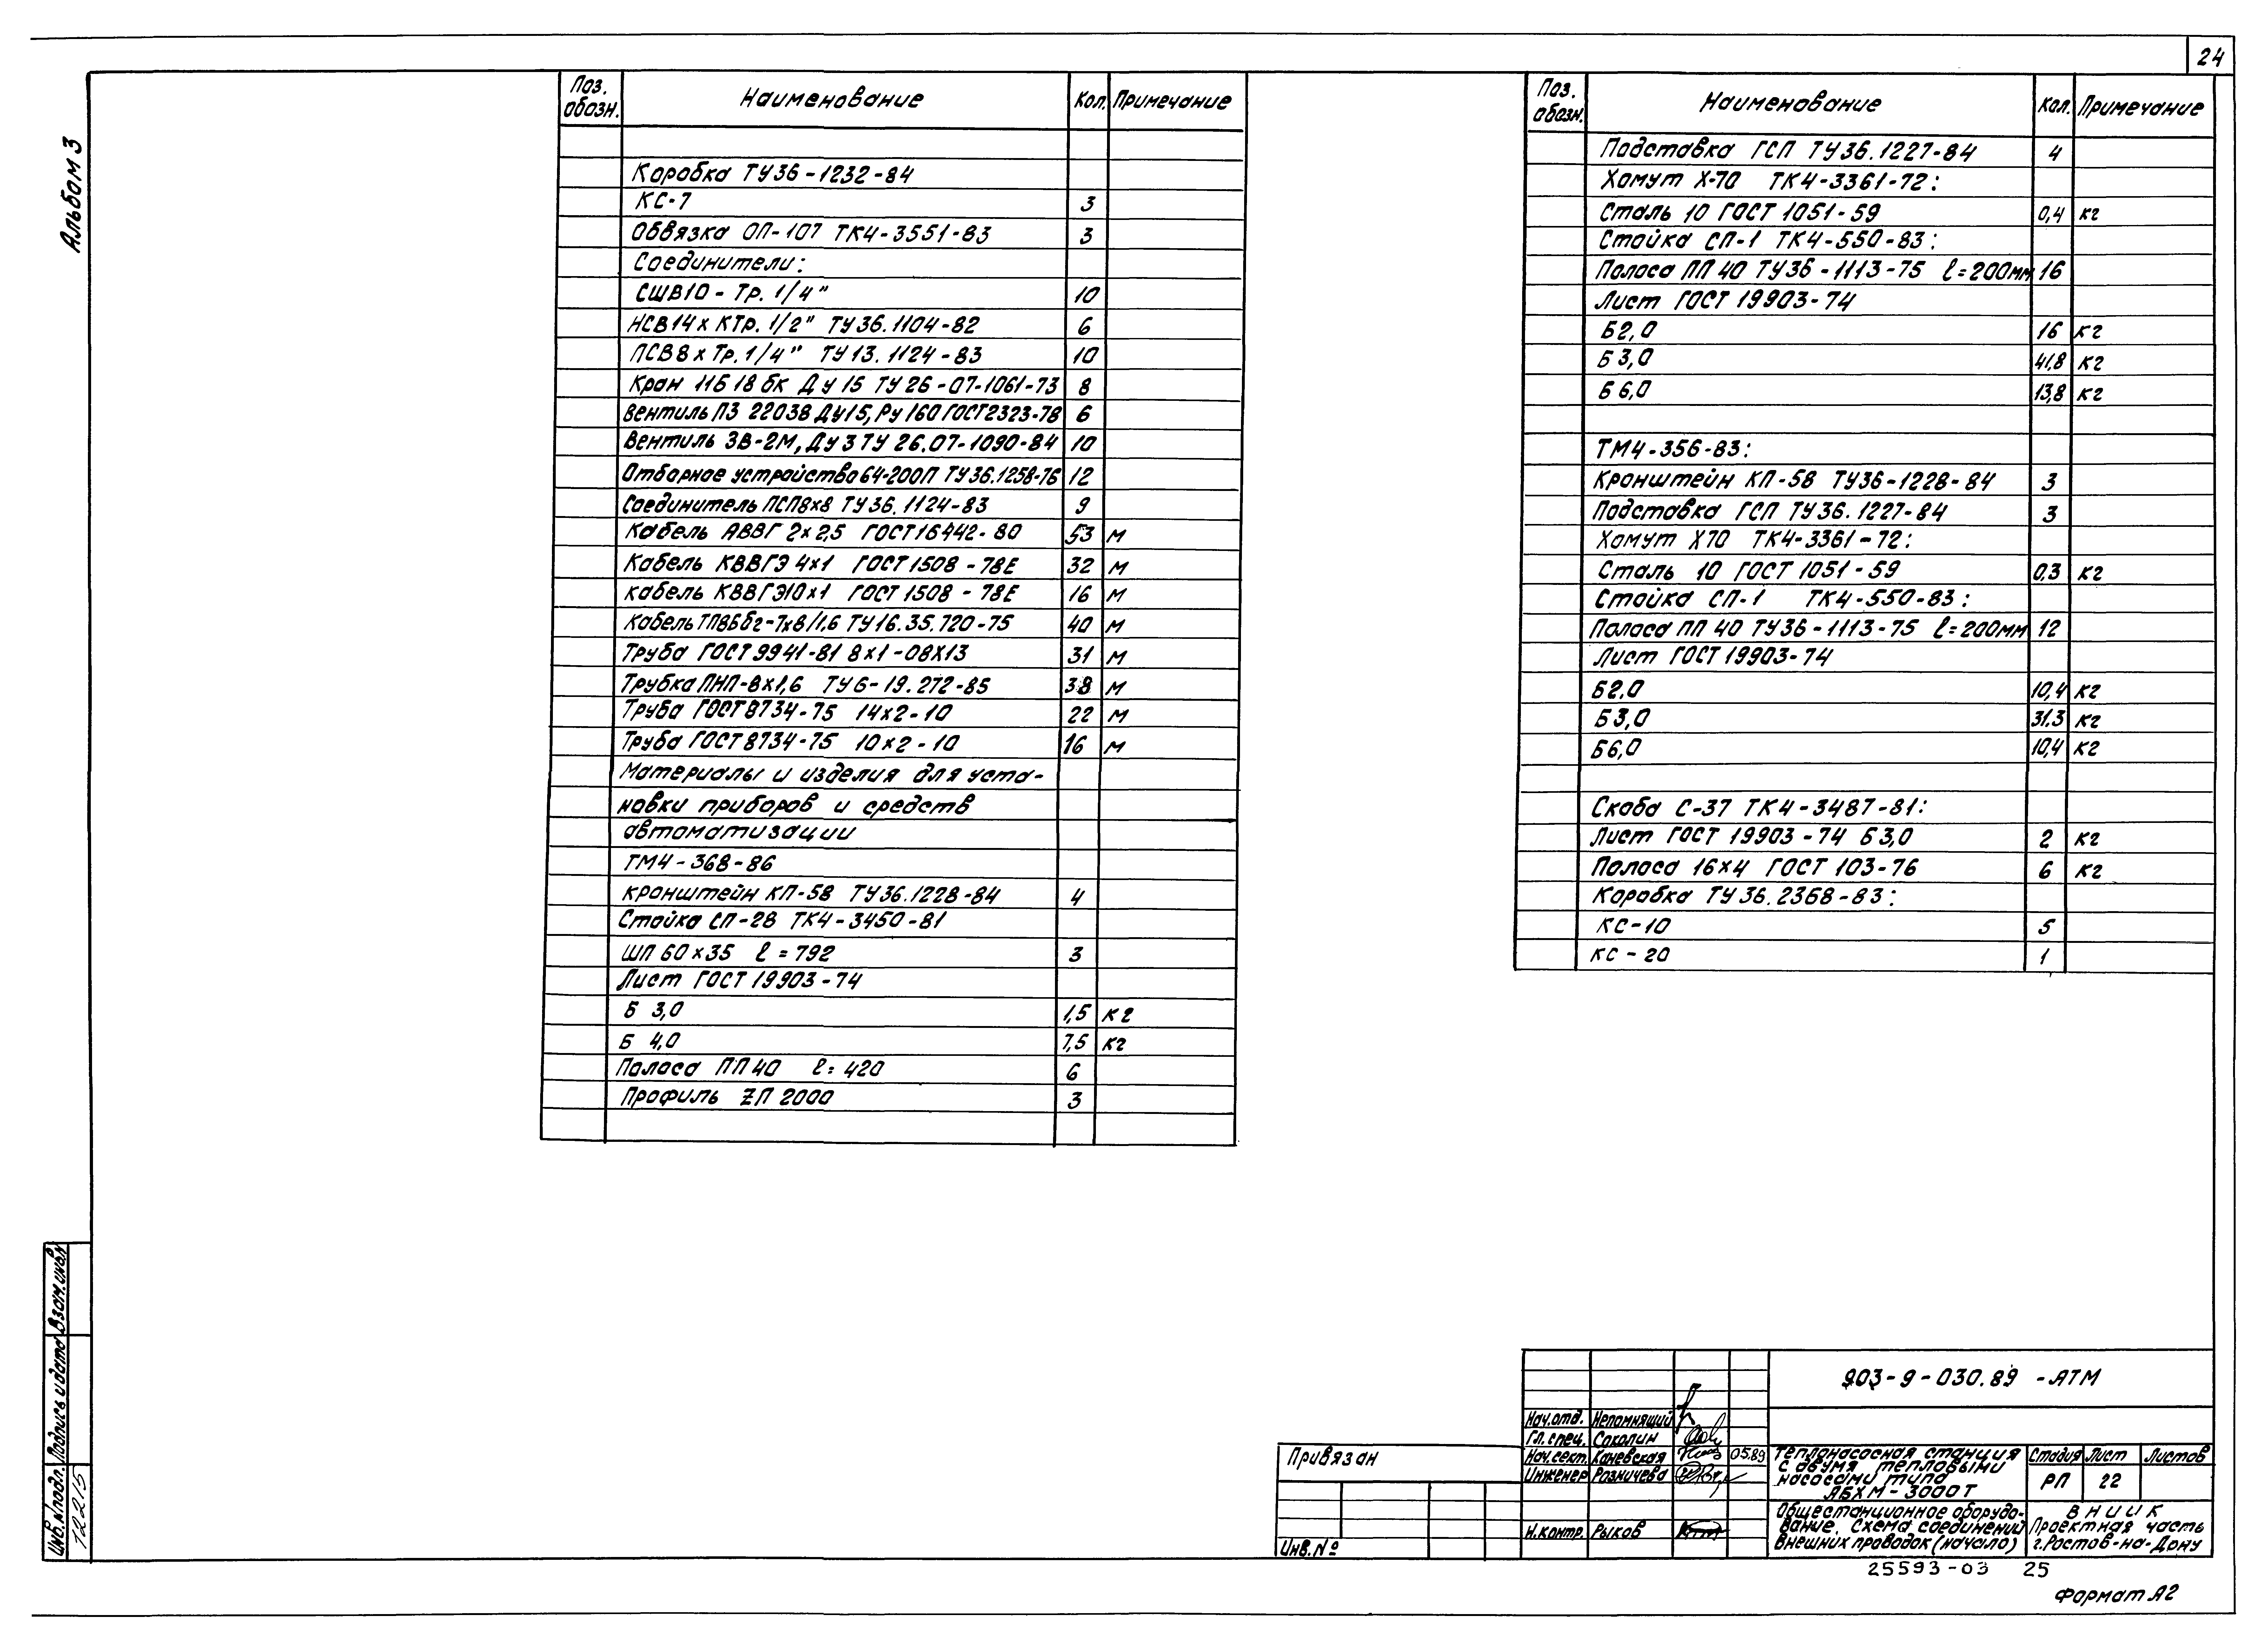 24
Альбом 3
Поз. обозн. Наименование Кол. Примечание
Коробка ТУ36-1232-84
КС-7 3
Обвязка ОП-107 ТК4-3551-83 3
Соединители:
СШВ10-Тр. 1/4" 10
НСВ14х КТр. 1/2" ТУ36.1104-82 6
ПСВ8хТр.1/4" ТУ13.1124-83 10
Кран 11Б18бк Ду15 ТУ26-07-1061-73 8
Вентиль ПЗ 22038 Ду15, Ру160 ГОСТ2323-78 6
Вентиль ЗВ-2М, Ду3 ТУ 26.07-1090-84 10
Отборное устройство 64-200П ТУ36.1258-76 12
Соединитель ПСП8х8 ТУ36.1124-83 9
Кабель АВВГ 2х2,5 ГОСТ16442-80 53 м
Кабель КВВГЭ 4х1 ГОСТ1508-78Е 32 м
кабель КВВГЭ10х1 ГОСТ1508-78Е 16 м
Кабель ТПВБбг-7х8/1,6 ТУ16.35.720-75 40 м
Труба ГОСТ9941-81 8х1-08Х13 31 м
Трубка ПНП-8х1,6 ТУ6-19.272-85 38 м
Труба ГОСТ8734-75 14х2-10 22 м
Труба ГОСТ8734-75 10х2-10 16 м
Материалы и изделия для уста-
новки приборов и средств
автоматизации
ТМ4-368-86
кронштейн КП-58 ТУ36.1228-84 4
Стойка СП-28 ТК4-3450-81
ШП 60х35 ℓ=792 3
Лист ГОСТ 19903-74
Б 3,0 1,5 кг
Б 4,0 7,5 кг
Полоса ПП40 ℓ=420 6
Профиль ZП 2000 3
Поз. обозн. Наименование Кол. Примечание
Подставка ГСП ТУ36.1227-84 4
Хомут Х-70 ТК4-3361-72:
Сталь 10 ГОСТ 1051-59 0,4 кг
Стойка СП-1 ТК4-550-83:
Полоса ПП 40 ТУ36-1113-75 ℓ=200мм 16
Лист ГОСТ 19903-74
Б2,0 16 кг
Б 3,0 41,8 кг
Б 6,0 13,8 кг
ТМ4-356-83:
Кронштейн КП-58 ТУ36-1228-84 3
Подставка ГСП ТУ36.1227-84 3
Хомут Х70 ТК4-3361-72:
Сталь 10 ГОСТ 1051-59 0,3 кг
Стойка СП-1 ТК4-550-83:
Полоса ПП 40 ТУ36-1113-75 ℓ=200мм 12
Лист ГОСТ 19903-74
Б2,0 10,4 кг
Б3,0 31,3 кг
Б6,0 10,4 кг
Скоба С-37 ТК4-3487-81:
Лист ГОСТ 19903-74 Б3,0 2 кг
Полоса 16х4 ГОСТ 103-76 6 кг
Коробка ТУ36.2368-83:
КС-10 5
КС-20 1
Взам.инв.№
Подпись и дата
Инв.№подл. 12215
Привязан
Инв.№
903-9-030.89 -АТМ
Нач.отд. Непомнящий
Гл.спец. Соколин
Нач.сект. Каневская 05.89
Инженер Разничева
Н.контр. Рыков
Теплонасосная станция
с двумя тепловыми
насосами типа
АБХМ-3000Т
Стадия Лист Листов
РП 22
Общестанционное оборудо-
вание. Схема соединений
внешних проводок (начало)
ВНИИК
Проектная часть
г.Ростов-на-Дону
25593-03 25
Формат А2